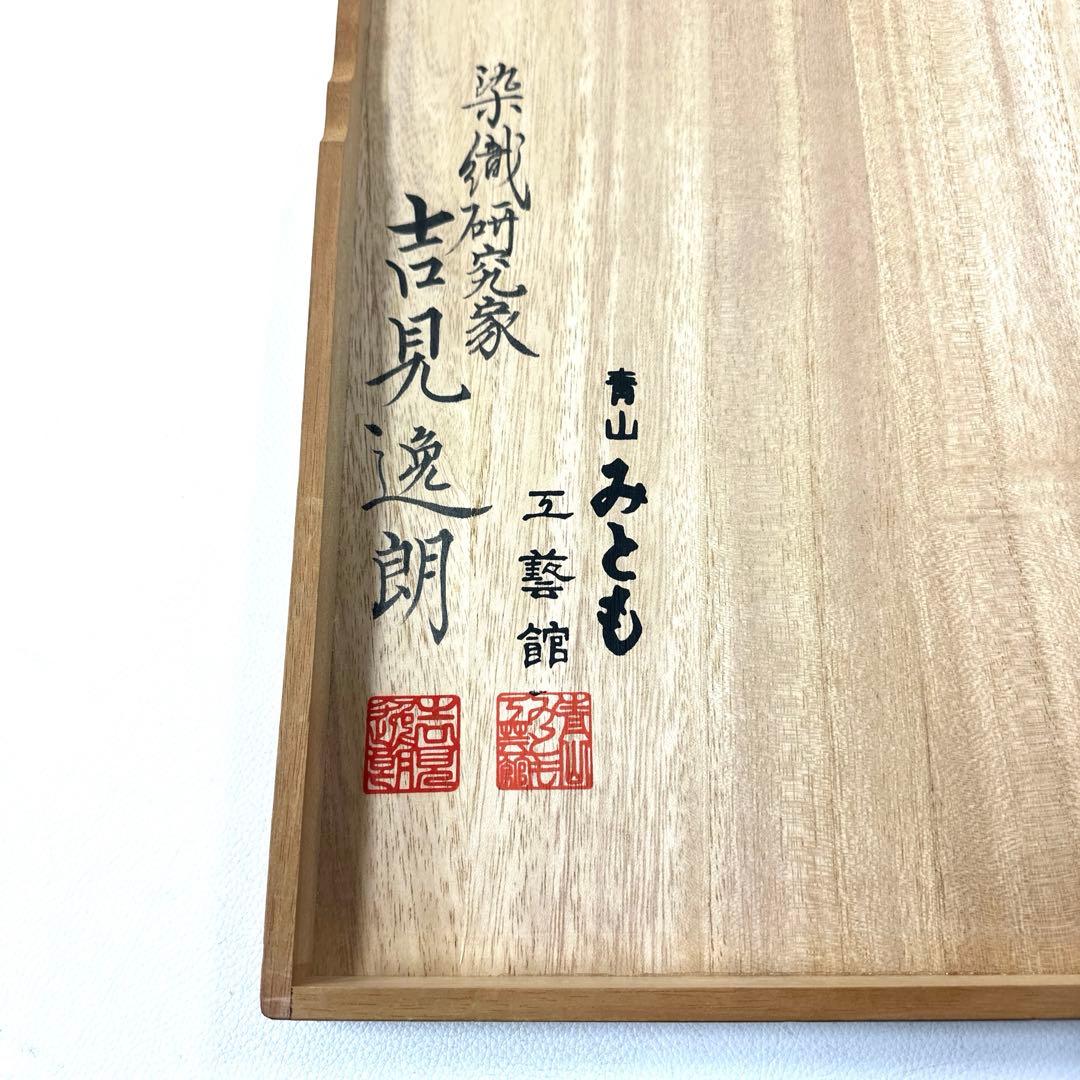 青山
みとも
工藝館
染織研究家
吉見逸朗
吉見
逸朗
青山
みとも
工芸館